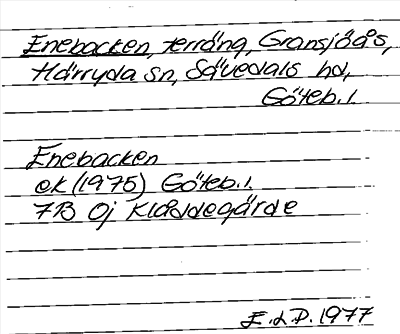 Enebacken, terräng, Gransjöås,
Härryda sn, Sävedals hd,
Göteb. l.
Enebacken
ek (1975) Göteb. l.
7B 0j Kläddegärde
E.d.P. 1977